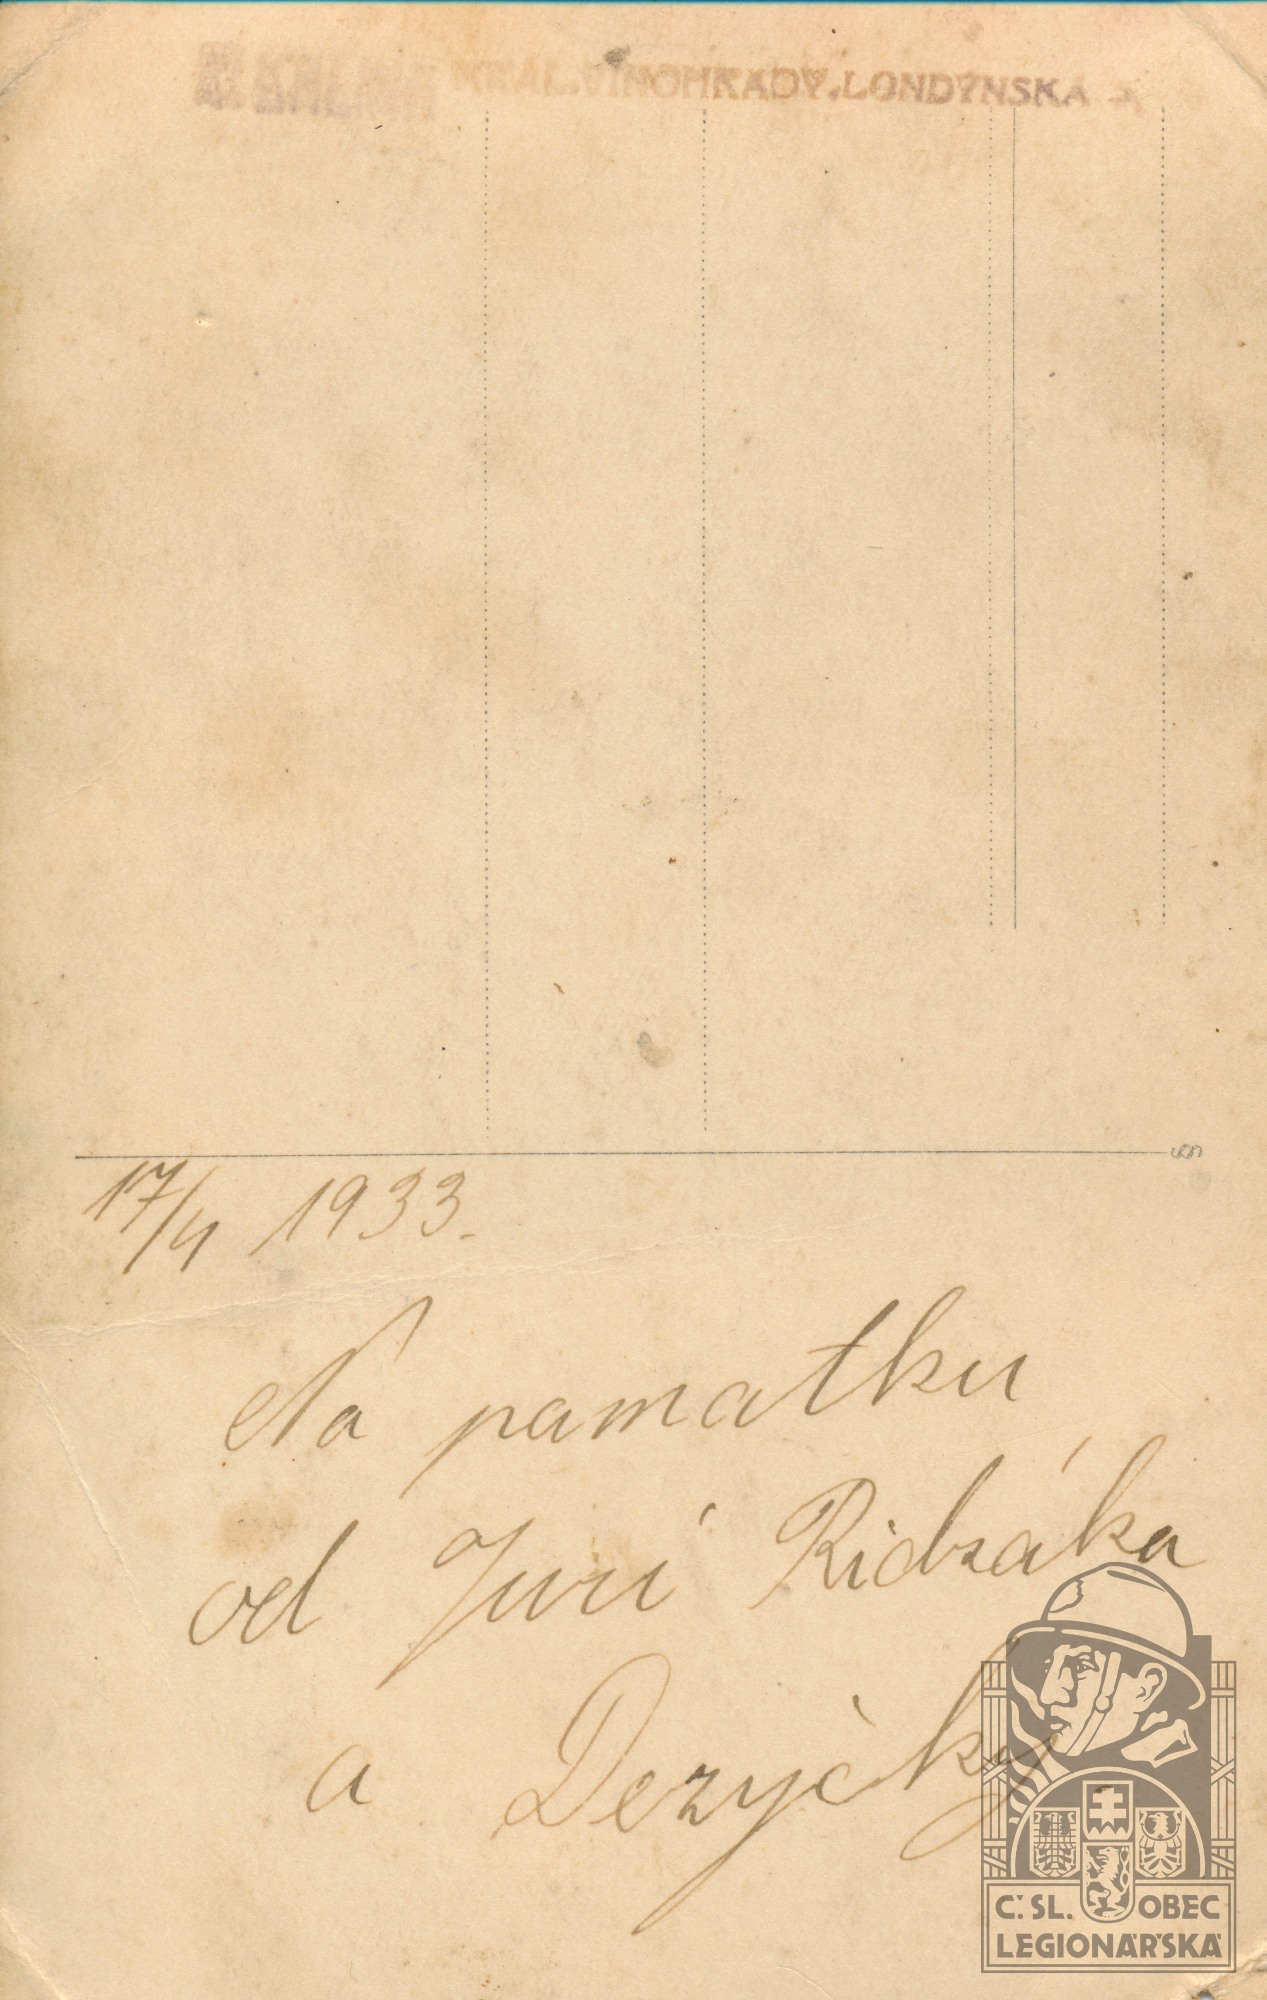 KRÁL. VINOHRADY, LONDÝNSKÁ
17/4 1933.
Na pamatku
od Jurí Ridzáka
a Dezyčky
Č. SL. OBEC
LEGIONÁŘSKÁ